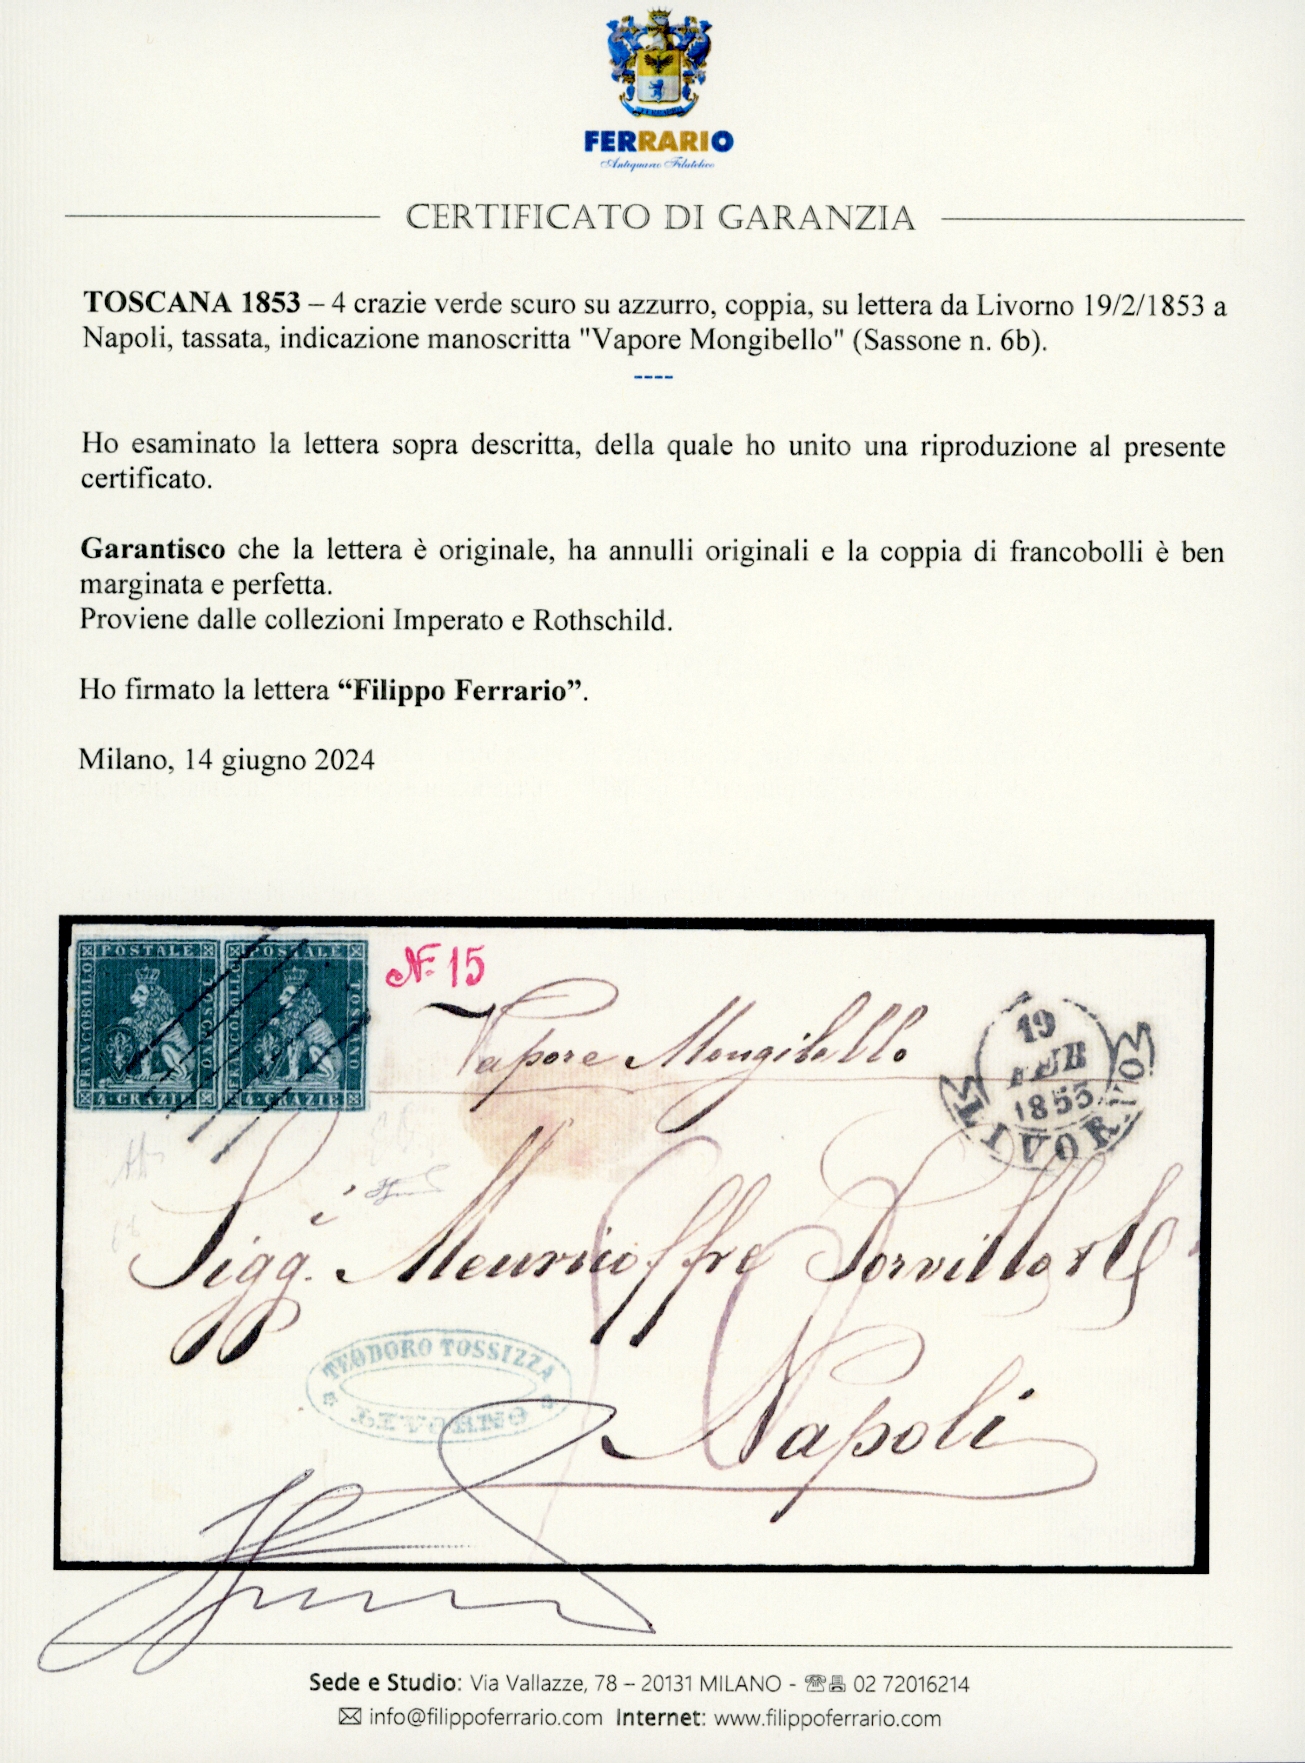 FERRARIO
Antiquario Filatelico
CERTIFICATO DI GARANZIA
TOSCANA 1853 – 4 crazie verde scuro su azzurro, coppia, su lettera da Livorno 19/2/1853 a
Napoli, tassata, indicazione manoscritta "Vapore Mongibello" (Sassone n. 6b).
----
Ho esaminato la lettera sopra descritta, della quale ho unito una riproduzione al presente
certificato.
Garantisco che la lettera è originale, ha annulli originali e la coppia di francobolli è ben
marginata e perfetta.
Proviene dalle collezioni Imperato e Rothschild.
Ho firmato la lettera “Filippo Ferrario”.
Milano, 14 giugno 2024
POSTALE POSTALE
FRANCOBOLLO TOSCANO FRANCOBOLLO TOSCANO
4·CRAZIE 4·CRAZIE
N. 15
Vapore Mongibello
19
FEB
1853
LIVORNO
Sigg.i Meuricoffre Sorvillo & C
TEODORO TOSSIZZA
LIVORNO
Napoli
Sede e Studio: Via Vallazze, 78 – 20131 MILANO - 02 72016214
info@filippoferrario.com Internet: www.filippoferrario.com